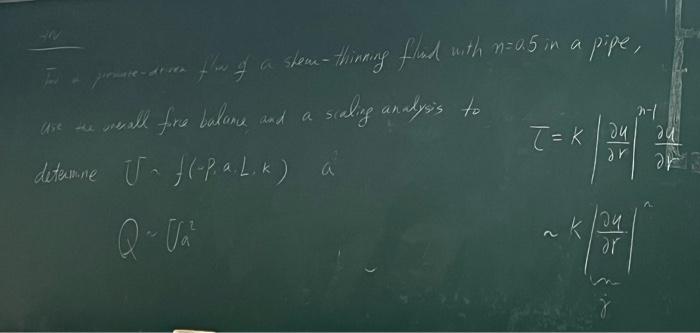 HW
For a pressure-driven flow of a shear-thinning fluid with n=0.5 in a pipe,
use the overall force balance and a scaling analysis to
determine U ~ f(-P, a, L, k) a
Q ~ Ua²
τ = K |∂u/∂r|ⁿ⁻¹ ∂u/∂r
~ K |∂u/∂r|ⁿ
γ̇